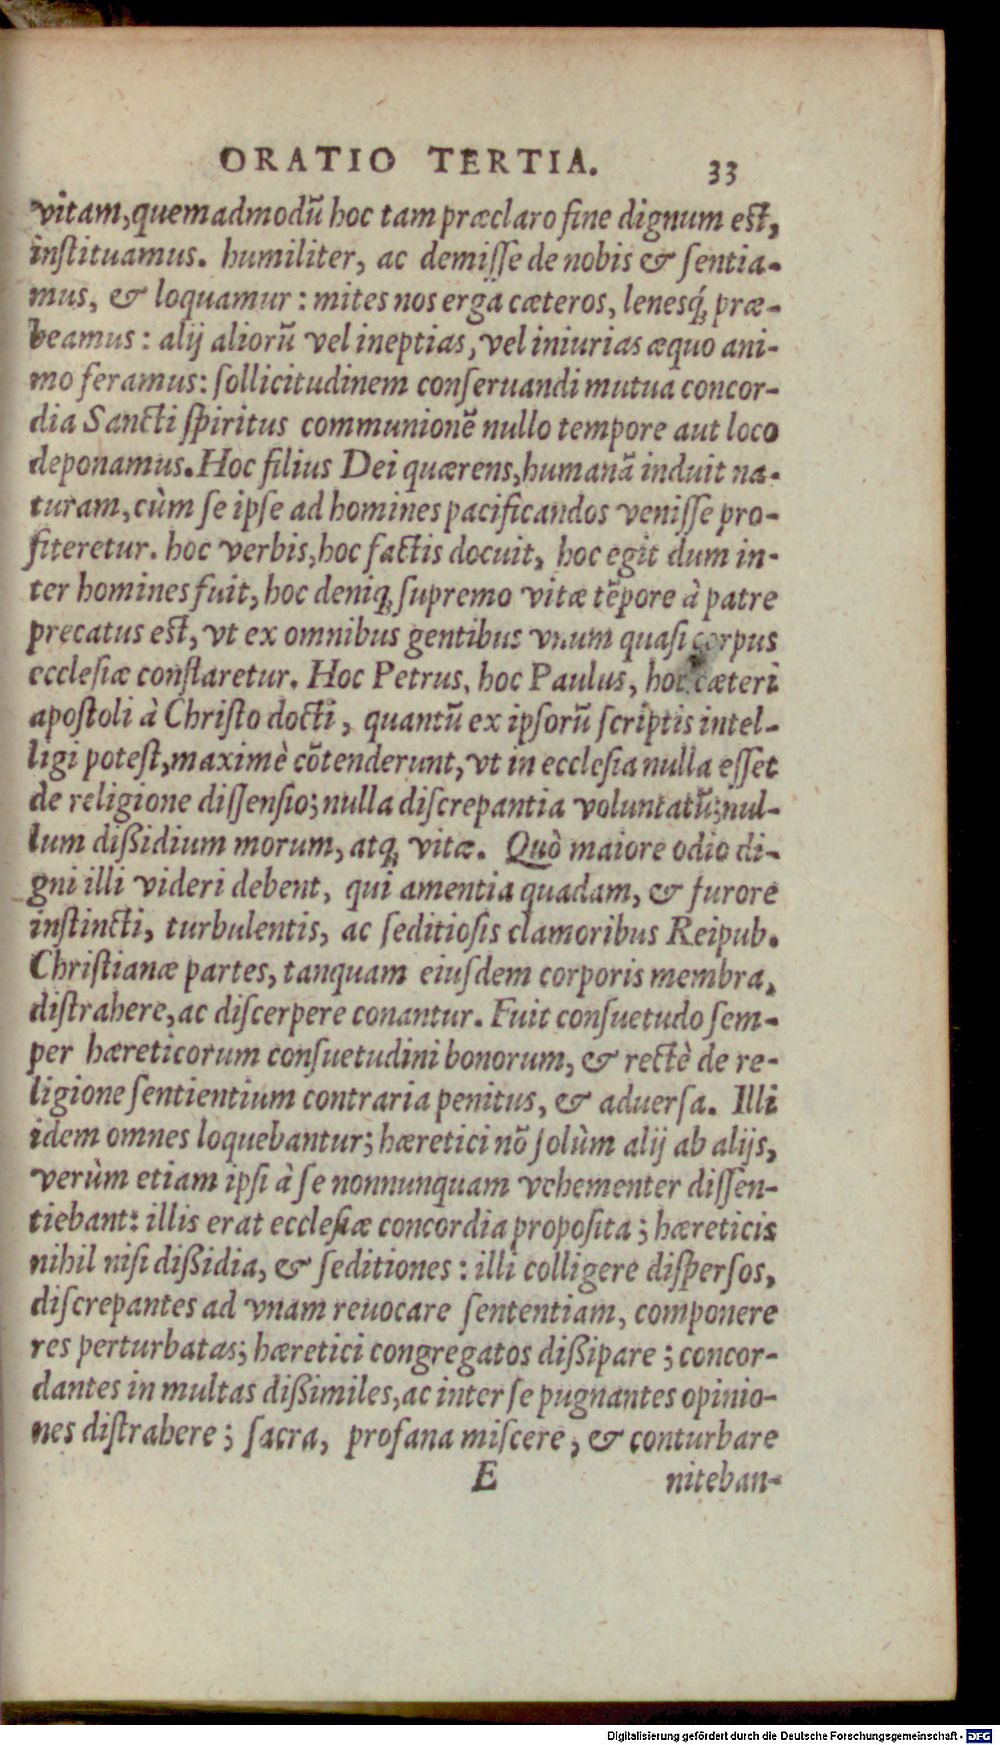 ORATIO TERTIA. 33
vitam, quemadmodū hoc tam præclaro fine dignum est,
instituamus. humiliter, ac demisse de nobis & sentia-
mus, & loquamur: mites nos ergà cæteros, lenesq́; præ-
beamus: alij aliorū vel ineptias, vel iniurias æquo ani-
mo feramus: sollicitudinem conseruandi mutua concor-
dia Sancti spiritus communionē nullo tempore aut loco
deponamus. Hoc filius Dei quærens, humanā induit na-
turam, cùm se ipse ad homines pacificandos venisse pro-
fiteretur. hoc verbis, hoc factis docuit, hoc egit dum in-
ter homines fuit, hoc deniq; supremo vitæ tēpore à patre
precatus est, vt ex omnibus gentibus vnum quasi corpus
ecclesiæ constaretur. Hoc Petrus, hoc Paulus, hoc cæteri
apostoli à Christo docti, quantū ex ipsorū scriptis intel-
ligi potest, maximè cōtenderunt, vt in ecclesia nulla esset
de religione dissensio; nulla discrepantia voluntatū; nul-
lum dißidium morum, atq; vitæ. Quò maiore odio di-
gni illi videri debent, qui amentia quadam, & furore
instincti, turbulentis, ac seditiosis clamoribus Reipub.
Christianæ partes, tanquam eiusdem corporis membra,
distrahere, ac discerpere conantur. Fuit consuetudo sem-
per hæreticorum consuetudini bonorum, & rectè de re-
ligione sentientium contraria penitus, & aduersa. Illi
idem omnes loquebantur; hæretici nō solùm alij ab alijs,
verùm etiam ipsi à se nonnunquam vehementer dissen-
tiebant: illis erat ecclesiæ concordia proposita; hæreticis
nihil nisi dißidia, & seditiones: illi colligere dispersos,
discrepantes ad vnam reuocare sententiam, componere
res perturbatas; hæretici congregatos dißipare; concor-
dantes in multas dißimiles, ac inter se pugnantes opinio-
nes distrahere; sacra, profana miscere, & conturbare
E niteban-
Digitalisierung gefördert durch die Deutsche Forschungsgemeinschaft - DFG